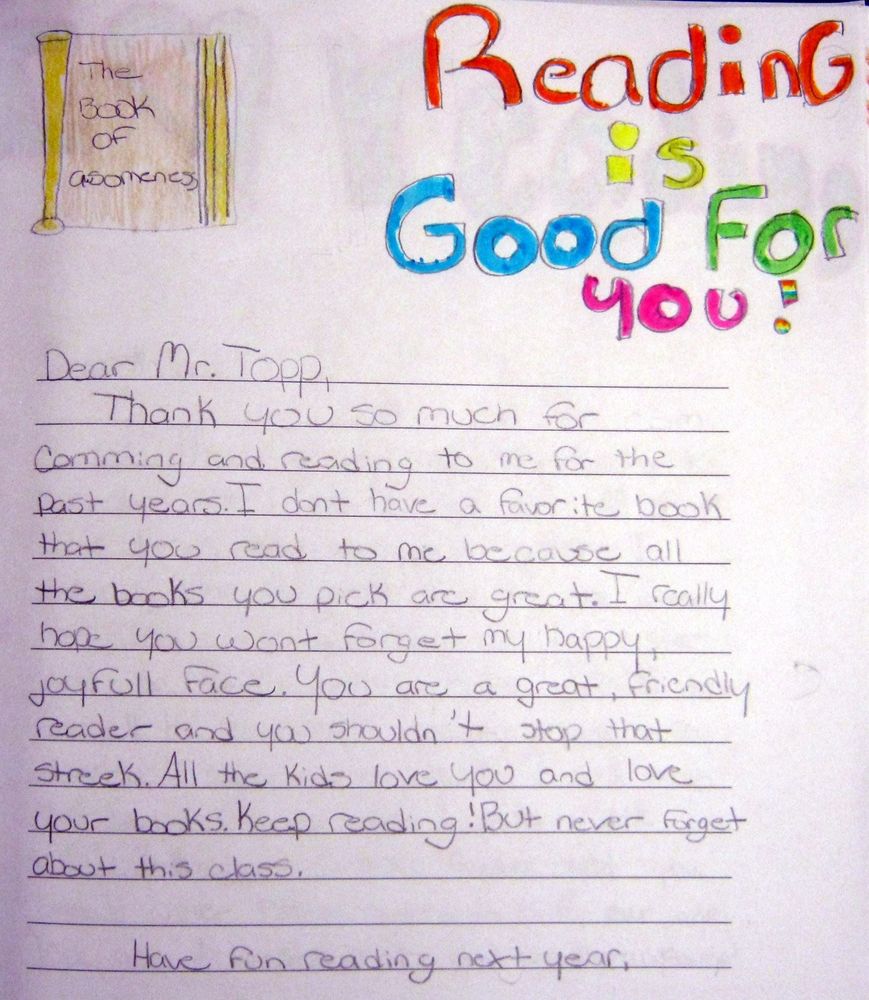 The
Book
of
asomeness
Reading
is
Good For
you!
Dear Mr. Topp,
Thank you so much for
Comming and reading to me for the
past years. I dont have a favorite book
that you read to me because all
the books you pick are great. I really
hope you wont forget my happy,
joyfull face. You are a great, friendly
reader and you shouldn't stop that
streek. All the kids love you and love
your books. Keep reading! But never forget
about this class.
Have fun reading next year,